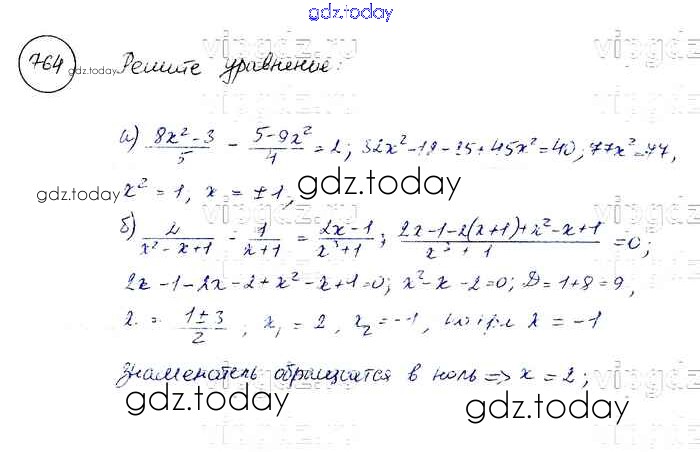 gdz.today
764 gdz.today Решите уравнение:
а) (8x² - 3)/5 - (5-9x²)/4 = 2; 32x² - 12 - 25 + 45x² = 40; 77x² = 77,
gdz.today x² = 1, x = ±1, gdz.today
б) 2/(x² - x + 1) - 1/(x+1) = (2x-1)/(x³+1); (2x-1-2(x+1)+x²-x+1)/(x³+1) = 0;
2x - 1 - 2x - 2 + x² - x + 1 = 0; x² - x - 2 = 0; D = 1 + 8 = 9,
x = (1±3)/2, x₁ = 2, x₂ = -1, x = -1
знаменатель обращается в ноль => x = 2;
gdz.today gdz.today